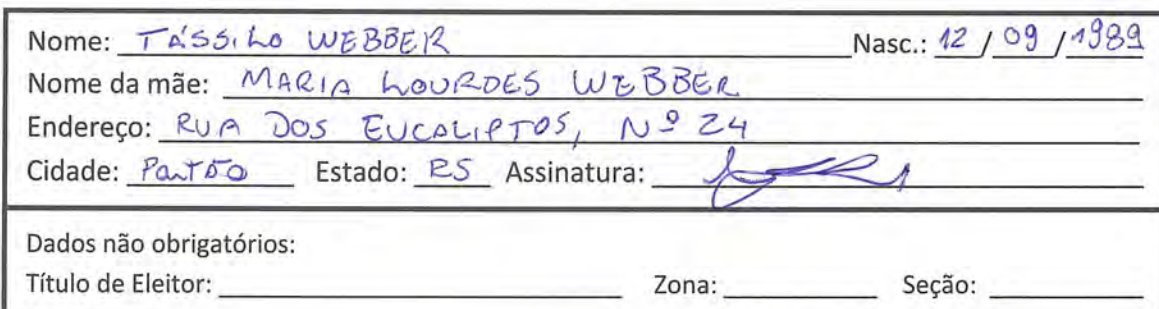 Nome: TÁSSILO WEBBER Nasc.: 12 / 09 / 1989
Nome da mãe: MARIA LOURDES WEBBER
Endereço: RUA DOS EUCALIPTOS, Nº 24
Cidade: PORTÃO Estado: RS Assinatura:
Dados não obrigatórios:
Título de Eleitor: Zona: Seção: